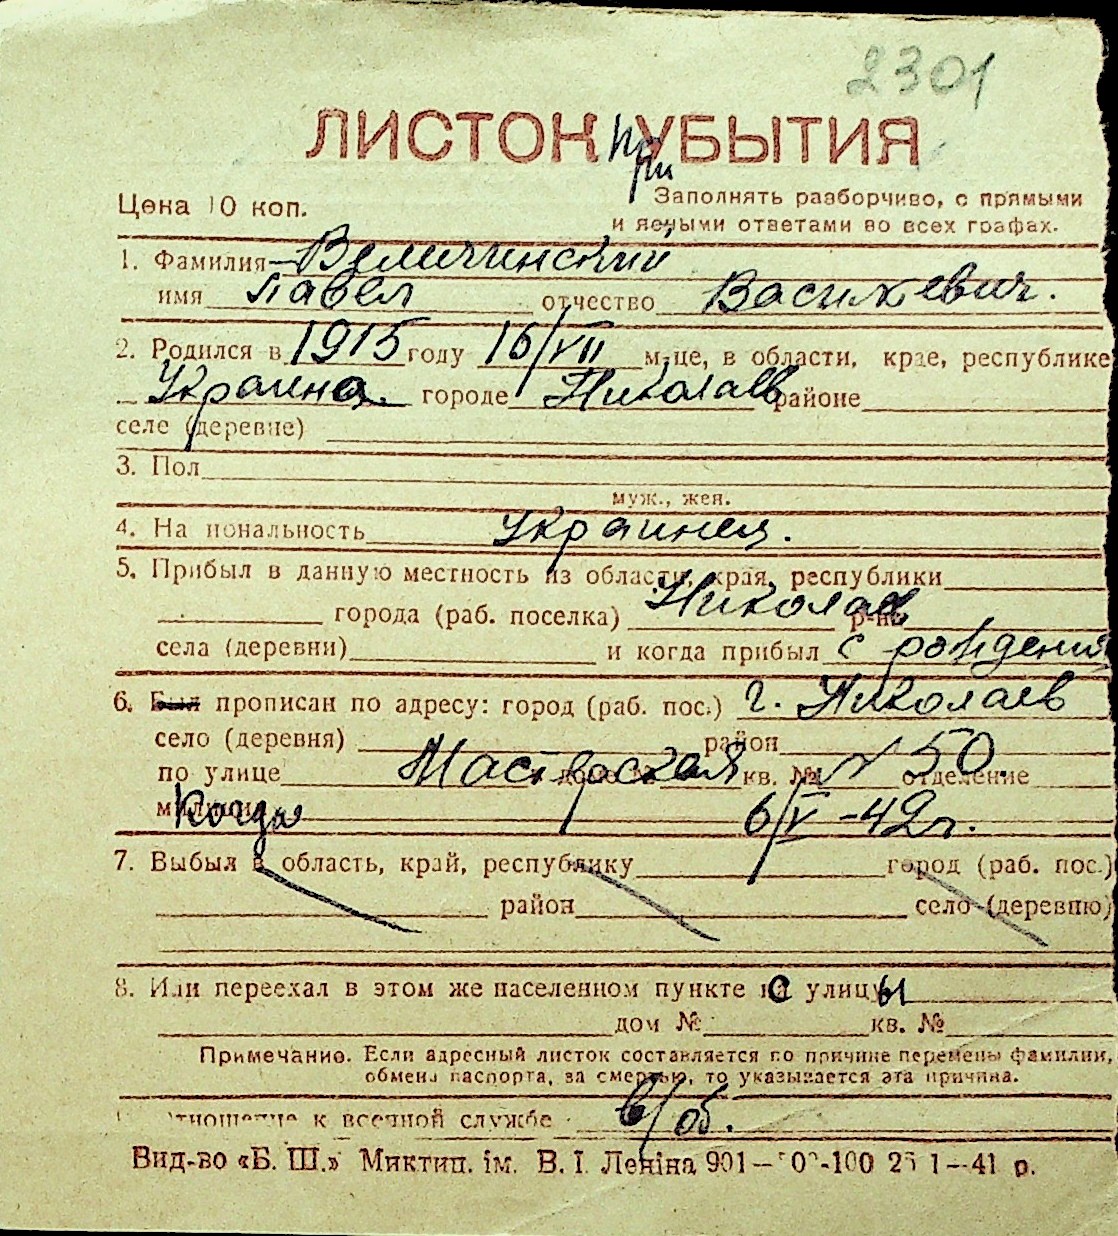 2301
ЛИСТОК при УБЫТИЯ
Цена 10 коп.
Заполнять разборчиво, с прямыми
и ясными ответами во всех графах.
1. Фамилия Величинский
имя Павел отчество Васильевич.
2. Родился в 1915 году 16/VII м-це, в области, крае, республике
Украина городе Николаев районе
селе (деревне)
3. Пол
муж., жен.
4. На иональность Украинец.
5. Прибыл в данную местность из области, края, республики
города (раб. поселка) Николаев р-на
села (деревни) и когда прибыл с рождения
6. Был прописан по адресу: город (раб. пос.) г. Николаев
село (деревня) район
по улице Мастерская доме № кв. № N 50. отделение
милиции Когда 6/V-42г.
7. Выбыл в область, край, республику город (раб. пос.)
район село (деревню)
8. Или переехал в этом же населенном пункте с улицы
дом № кв. №
Примечание. Если адресный листок составляется по причине перемены фамилии,
обмена паспорта, за смертью, то указывается эта причина.
отношение к военной службе в/об.
Вид-во «Б. Ш.» Миктип. ім. В. І. Леніна 901— -100 25 1—41 р.